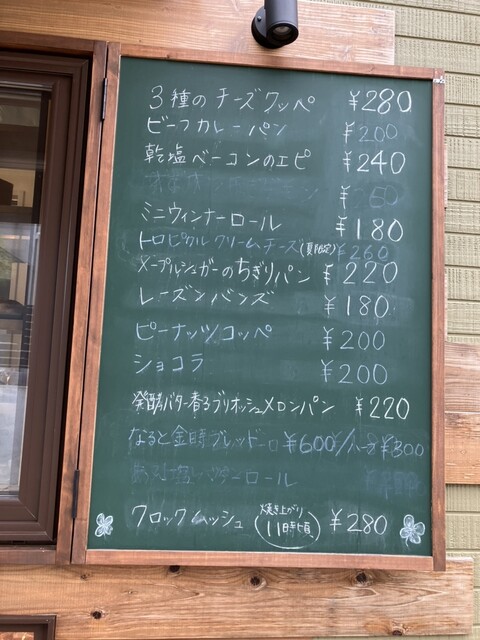 3種のチーズクッペ ¥280
ビーフカレーパン ¥200
乾塩ベーコンのエピ ¥240
¥260
ミニウィンナーロール ¥180
トロピカルクリームチーズ(夏限定) ¥260
メープルシュガーのちぎりパン ¥220
レーズンバンズ ¥180
ピーナッツコッペ ¥200
ショコラ ¥200
発酵バター香るブリオッシュメロンパン ¥220
なると金時ブレッド ¥600/ハーフ¥300
ロール
クロックムッシュ (焼き上がり 11時頃) ¥280